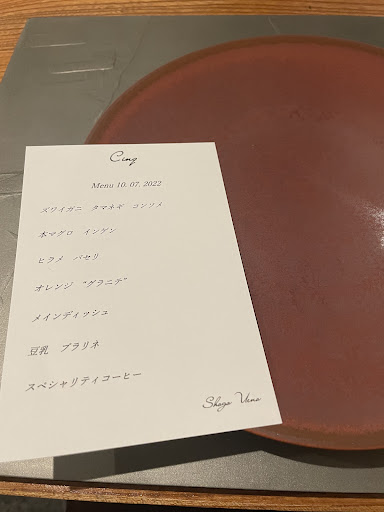 Cinq
Menu 10. 07. 2022
ズワイガニ　タマネギ　コンソメ
本マグロ　インゲン
ヒラメ　パセリ
オレンジ　“グラニテ”
メインディッシュ
豆乳　プラリネ
スペシャリティコーヒー
Shogo Ueno